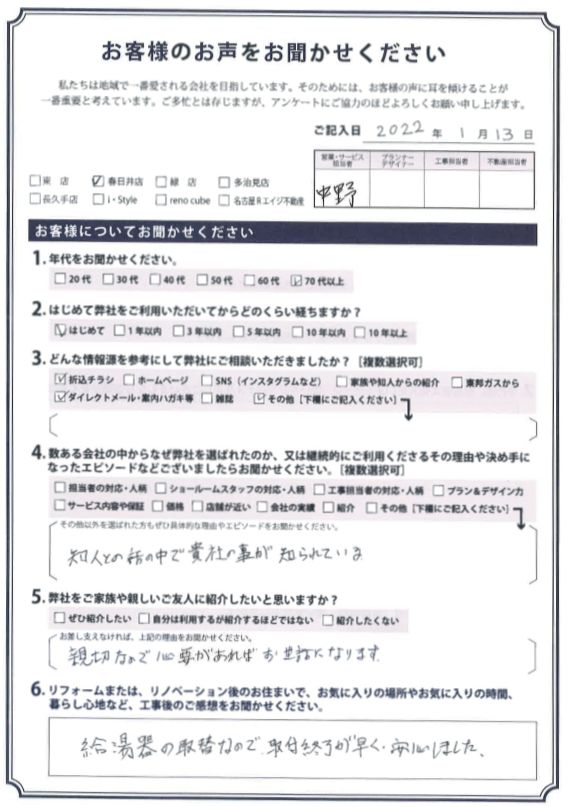 お客様のお声をお聞かせください
私たちは地域で一番愛される会社を目指しています。そのためには、お客様の声に耳を傾けることが
一番重要と考えています。ご多忙とは存じますが、アンケートにご協力のほどよろしくお願い申し上げます。
ご記入日 2022 年 1 月 13 日
営業・サービス担当者 プランナーデザイナー 工事担当者 不動産担当者
中野
□東 店 ☑春日井店 □緑 店 □多治見店
□長久手店 □i・Style □reno cube □名古屋Rエイジ不動産
お客様についてお聞かせください
1. 年代をお聞かせください。
□20代 □30代 □40代 □50代 □60代 ☑70代以上
2. はじめて弊社をご利用いただいてからどのくらい経ちますか?
☑はじめて □1年以内 □3年以内 □5年以内 □10年以内 □10年以上
3. どんな情報源を参考にして弊社にご相談いただきましたか?[複数選択可]
☑折込チラシ □ホームページ □SNS(インスタグラムなど) □家族や知人からの紹介 □東邦ガスから
☑ダイレクトメール・案内ハガキ等 □雑誌 ☑その他[下欄にご記入ください]
4. 数ある会社の中からなぜ弊社を選ばれたのか、又は継続的にご利用くださるその理由や決め手に
なったエピソードなどございましたらお聞かせください。[複数選択可]
□担当者の対応・人柄 □ショールームスタッフの対応・人柄 □工事担当者の対応・人柄 □プラン&デザイン力
□サービス内容や保証 □価格 □店舗が近い □会社の実績 □紹介 □その他[下欄にご記入ください]
その他以外を選ばれた方もぜひ具体的な理由やエピソードをお聞かせください。
知人との話の中で貴社の事が知られている
5. 弊社をご家族や親しいご友人に紹介したいと思いますか?
□ぜひ紹介したい □自分は利用するが紹介するほどではない □紹介したくない
お差し支えなければ、上記の理由をお聞かせください。
親切なので心要があればお世話になります
6. リフォームまたは、リノベーション後のお住まいで、お気に入りの場所やお気に入りの時間、
暮らし心地など、工事後のご感想をお聞かせください。
給湯器の取替なので、取付終了が早く、安心しました、